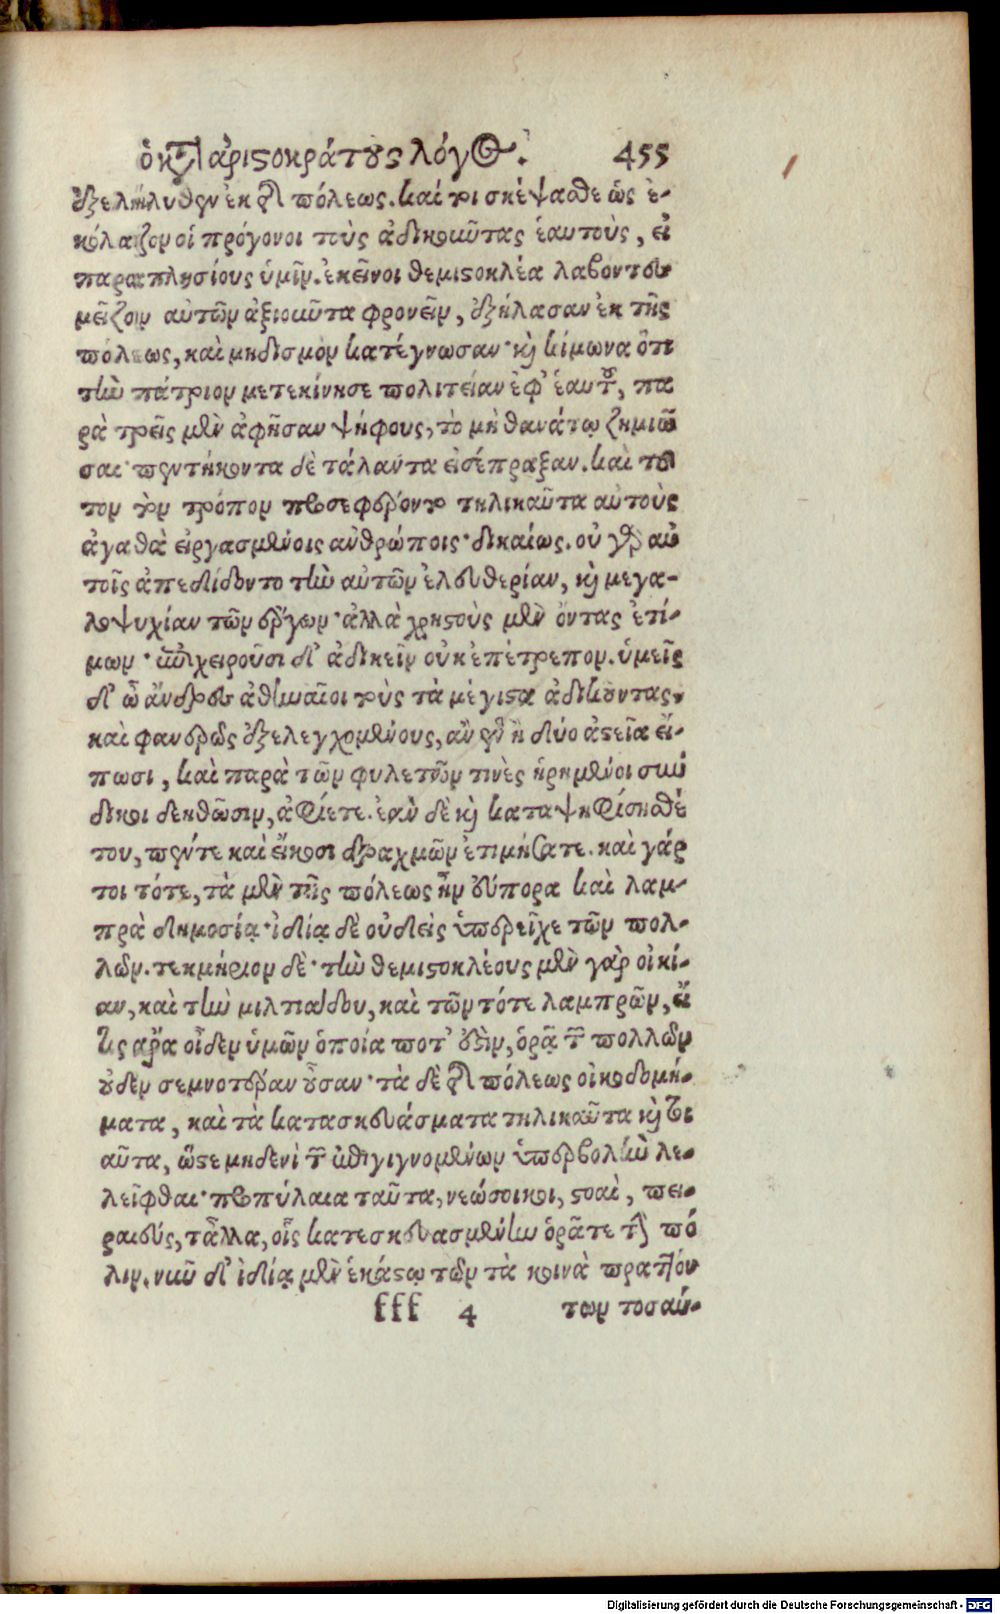 ὁ κατ' ἀριστοκράτους λόγος. 455
ἐξεληλυθεν ἐκ τῆς πόλεως. καί τοι σκέψασθε ὡς ἐ-
κόλαζον οἱ πρόγονοι τοὺς ἀδικοῦντας ἑαυτοὺς, εἰ
παραπλησίους ὑμῖν. ἐκεῖνοι θεμιστοκλέα λαβόντες
μεῖζον αὐτῶν ἀξιοῦντα φρονεῖν, ἐξήλασαν ἐκ τῆς
πόλεως, καὶ μηδισμὸν κατέγνωσαν· καὶ κίμωνα ὅτι
τὴν πάτριον μετεκίνησε πολιτείαν ἐφ' ἑαυτοῦ, πα
ρὰ τρεῖς μὲν ἀφῆσαν ψήφους, τὸ μὴ θανάτῳ ζημιῶ
σαι· πεντήκοντα δὲ τάλαντα εἰσέπραξαν. καὶ τοῦ
τον τὸν τρόπον προσεφέροντο τηλικαῦτα αὐτοὺς
ἀγαθὰ εἰργασμένοις ἀνθρώποις· δικαίως. οὐ γὰρ αὐ
τοῖς ἀπεδίδοντο τὴν αὐτῶν ἐλευθερίαν, καὶ μεγα-
λοψυχίαν τῶν ἔργων· ἀλλὰ χρηστοὺς μὲν ὄντας ἐτί-
μων· ἐπιχειροῦσι δ' ἀδικεῖν οὐκ ἐπέτρεπον. ὑμεῖς
δ' ὦ ἄνδρες ἀθηναῖοι τοὺς τὰ μέγιστα ἀδικοῦντας,
καὶ φανερῶς ἐξελεγχομένους, ἂν ἓν ἢ δύο ἀστεῖα εἴ-
πωσι, καὶ παρὰ τῶν φυλετῶν τινὲς ᾑρημένοι σύν
δικοι δεηθῶσιν, ἀφίετε. ἐὰν δὲ καὶ καταψηφίσησθέ
του, πέντε καὶ εἴκοσι δραχμῶν ἐτιμήσατε. καὶ γάρ
τοι τότε, τὰ μὲν τῆς πόλεως ἦν εὔπορα καὶ λαμ-
πρὰ δημοσίᾳ· ἰδίᾳ δὲ οὐδεὶς ὑπερεῖχε τῶν πολ-
λῶν. τεκμήριον δὲ· τὴν θεμιστοκλέους μὲν γὰρ οἰκί-
αν, καὶ τὴν μιλτιάδου, καὶ τῶν τότε λαμπρῶν, εἴ
τις ἄρα οἶδεν ὑμῶν ὁποία ποτ' ἐστὶν, ὁρᾷ τῶν πολλῶν
οὐδὲν σεμνοτέραν οὖσαν· τὰ δὲ τῆς πόλεως οἰκοδομή-
ματα, καὶ τὰ κατασκευάσματα τηλικαῦτα καὶ τοι
αῦτα, ὥστε μηδενὶ τῶν ἐπιγιγνομένων ὑπερβολὴν λε-
λεῖφθαι· προπύλαια ταῦτα, νεώσοικοι, στοαὶ, πει-
ραιεύς, τἆλλα, οἷς κατεσκευασμένην ὁρᾶτε τὴν πό
λιν. νῦν δ' ἰδίᾳ μὲν ἑκάστῳ τῶν τὰ κοινὰ πραττόν
fff 4 των τοσαύ-
Digitalisierung gefördert durch die Deutsche Forschungsgemeinschaft - DFG